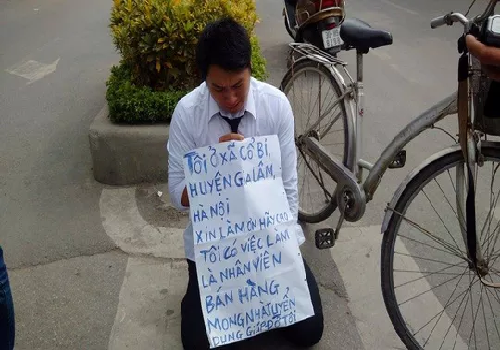 TÔI Ở XÃ CỔ BI,
HUYỆN GIA LÂM,
HÀ NỘI
XIN LÀM ƠN HÃY CHO
TÔI CÓ VIỆC LÀM
LÀ NHÂN VIÊN
BÁN HÀNG,
MONG NHÀ TUYỂN
DỤNG GIÚP ĐỠ TÔI